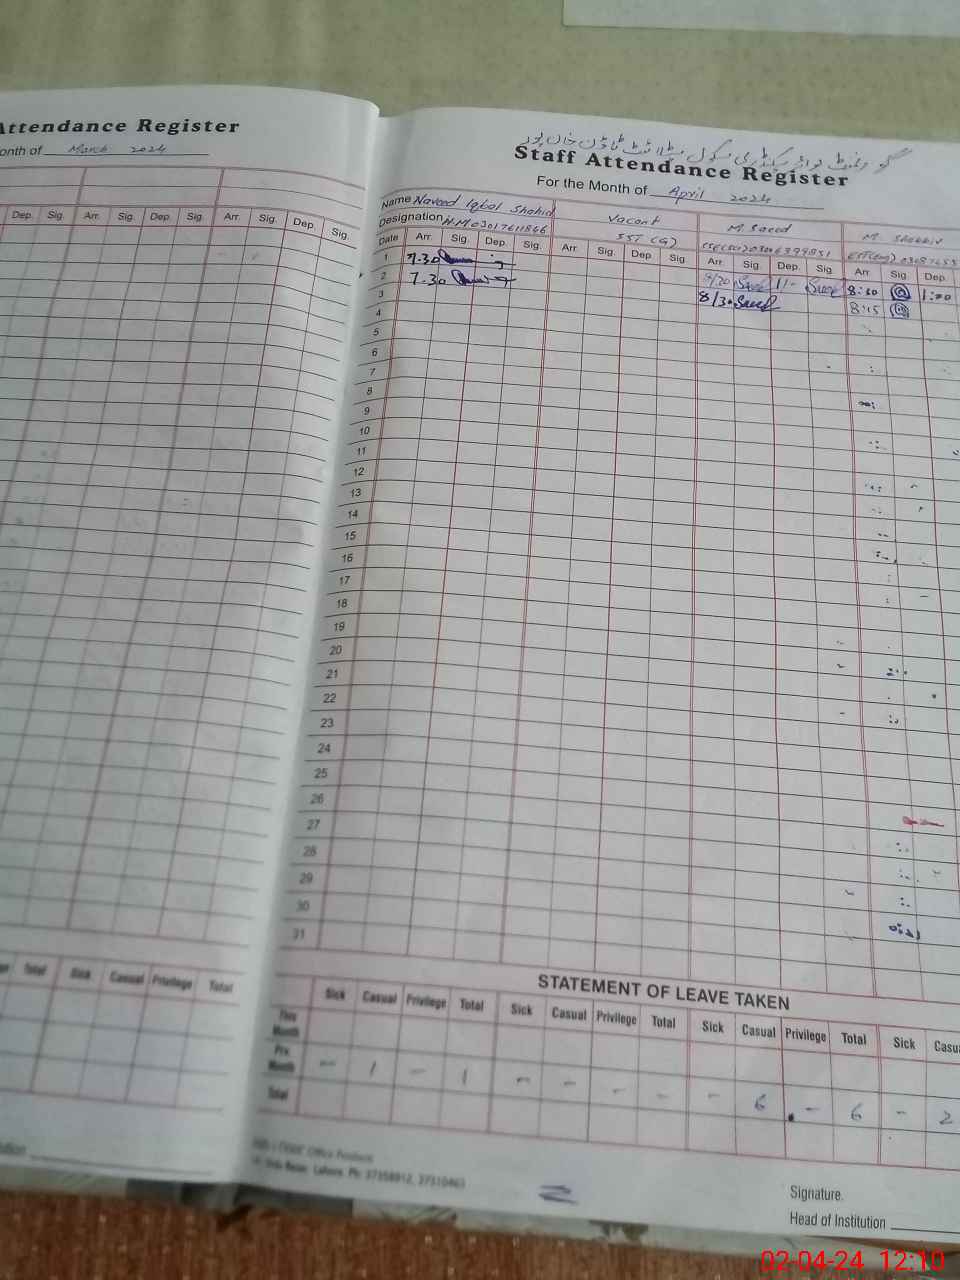 Attendance Register
onth of March 2024
Dep. Sig. Arr. Sig. Dep. Sig. Arr. Sig. Dep. Sig.
Total Sick Casual Privilege Total
Staff Attendance Register
For the Month of April 2024
Name Naveed Iqbal Shahid Vacant M. Saeed M.
Designation H.M 03017611866 SST (G)
Date Arr. Sig. Dep. Sig. Arr. Sig. Dep. Sig. Arr. Sig. Dep. Sig. Arr. Sig. Dep.
1 7.30 8/30 Saeed 1/- Saeed 8:30 1:00
2 7.30 8/30 Saeed 8:15
3
4
5
6
7
8
9
10
11
12
13
14
15
16
17
18
19
20
21
22
23
24
25
26
27
28
29
30
31
STATEMENT OF LEAVE TAKEN
Sick Casual Privilege Total Sick Casual Privilege Total Sick Casual Privilege Total Sick Casu
This Month
Pre. Month - 1 - 1 - - - - - 6 - 6 - 2
Total
Office Products
Lahore. Ph: 37358912, 37310463
Signature.
Head of Institution
02-04-24 12:10